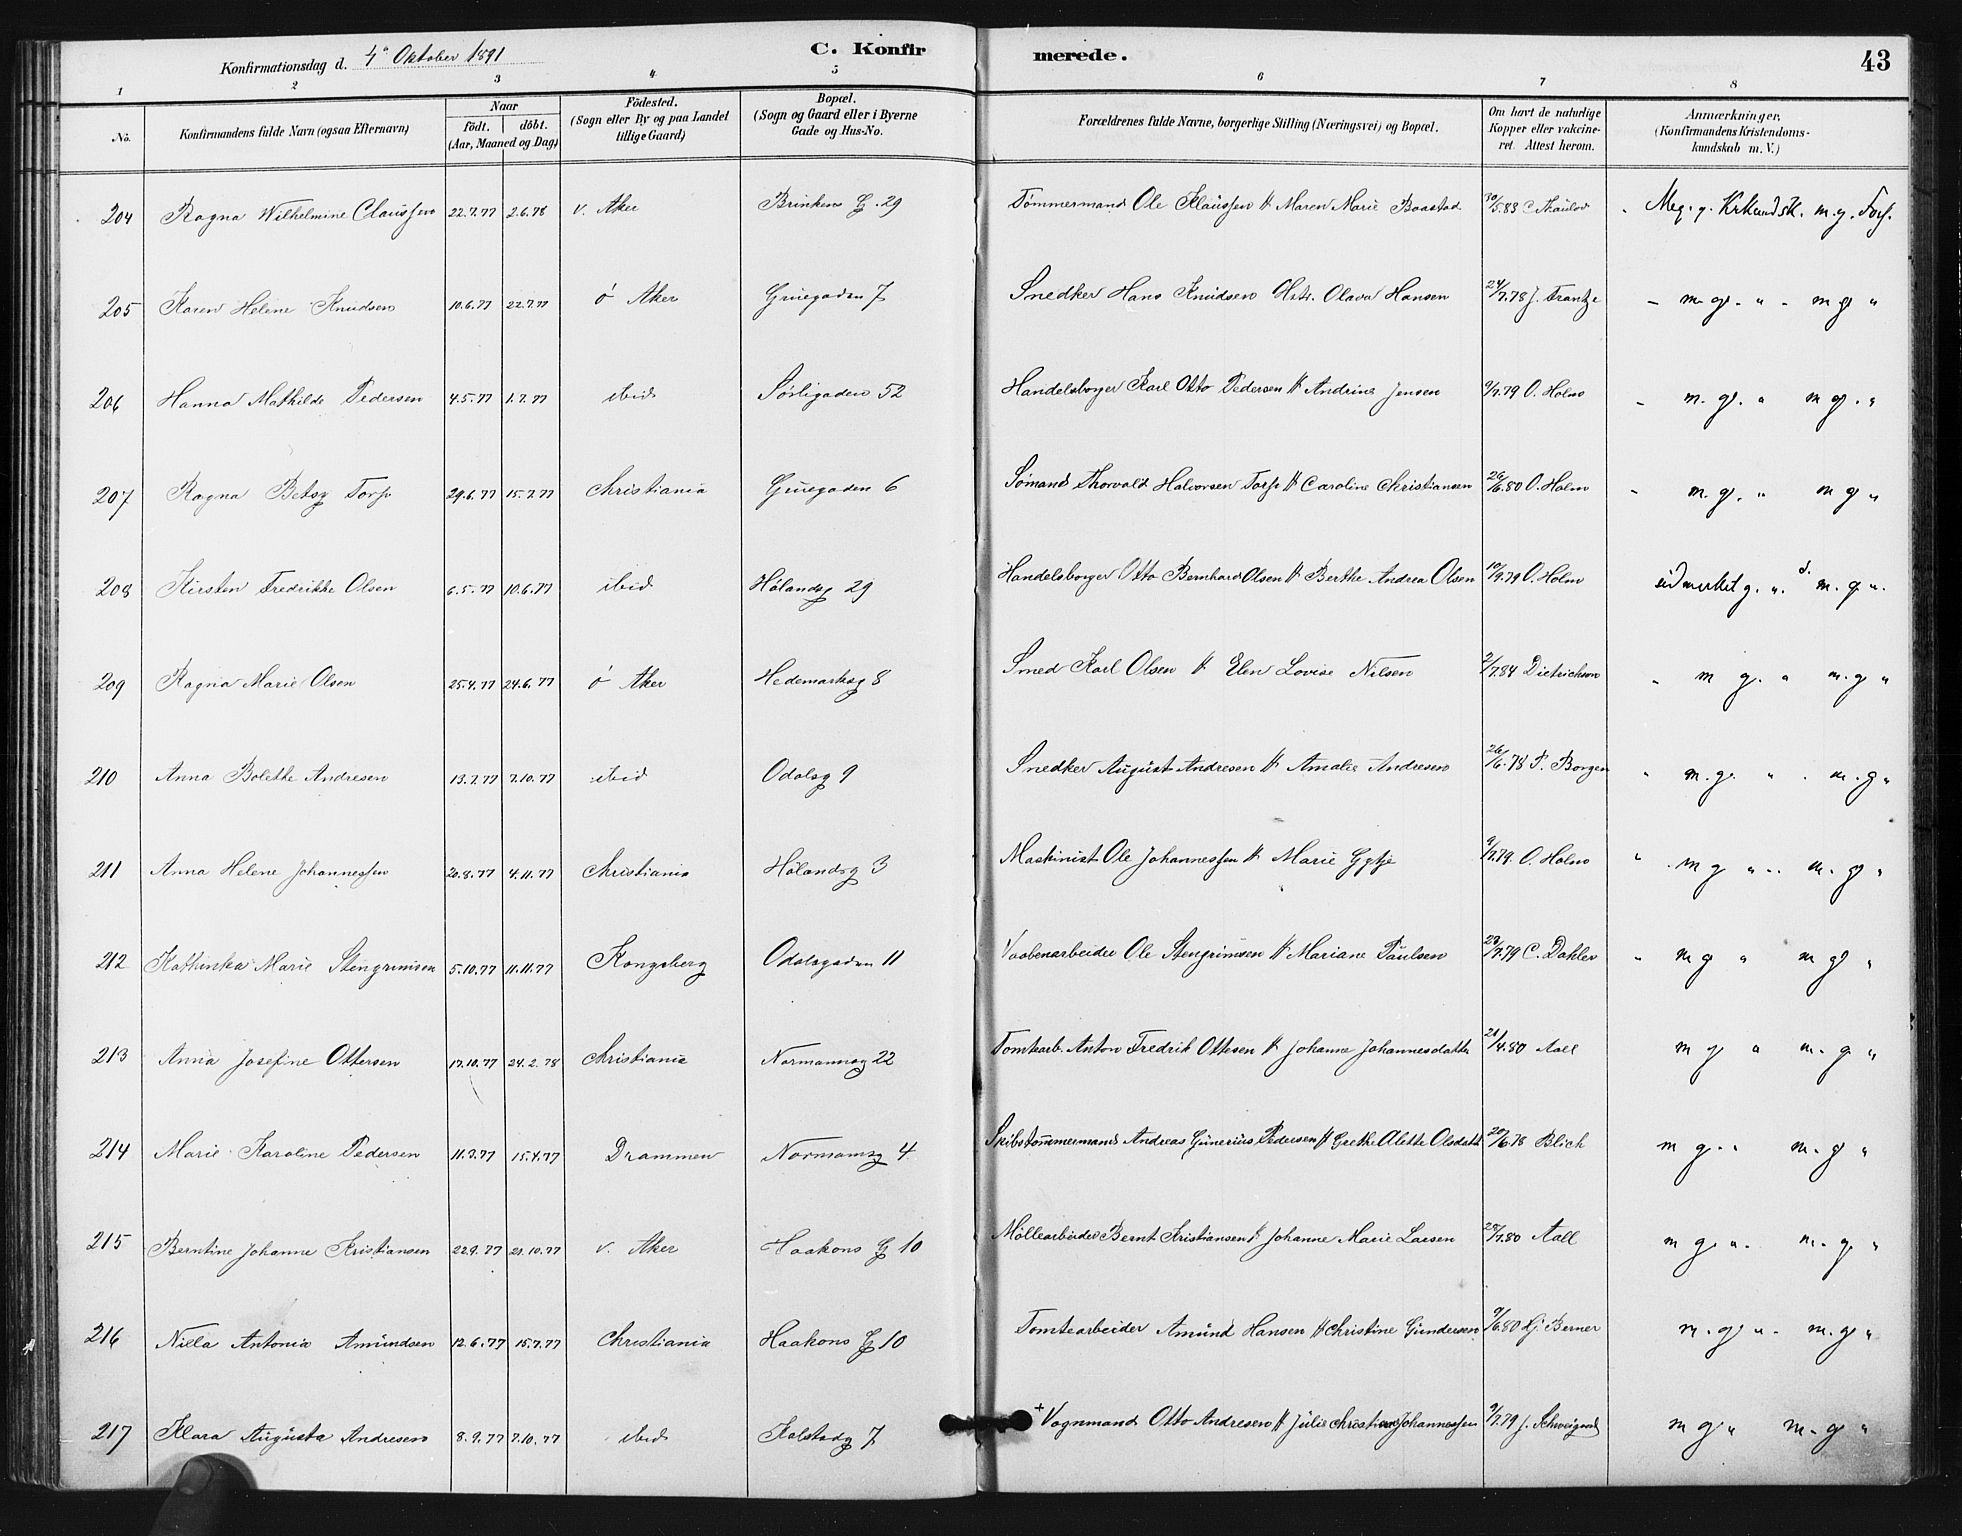 Konfirmationsdag d. 4de Oktober 1891 C. Konfirmerede. 43
1 2 3 4 5 6 7 8
No. Konfirmandens fulde Navn (ogsaa Efternavn) Naar födt. döbt. (Aar, Maaned og Dag) Födested. (Sogn eller By og paa Landet tillige Gaard) Bopæl. (Sogn og Gaard eller i Byerne Gade og Hus-No. Forældrenes fulde Navne, borgerlige Stilling (Næringsvei) og Bopæl. Om havt de naturlige Kopper eller vakcineret. Attest herom. Anmærkninger, (Konfirmandens Kristendomskundskab m. V.)
204 Ragna Wilhelmine Claussen 22.7.77 2.6.78 v. Aker Brinkens G. 29 Tømmermand Ole Klaussen & Maren Marie Baastad 30/5.83 C Thaulow Meg. g. Krkundsk. m. g. Forh.
205 Karen Helene Knudsen 10.6.77 22.7.77 ö Aker Gruegaden 7 Snedker Hans Knudsen & Hstr. Olava Hansen 24/7.78 J. Frantze - m. g. " - m g "
206 Hanna Mathilde Pedersen 4.5.77 1.7.77 ibid Sørligaden 52 Handelsborger Karl Otto Pedersen & Andrine Jensen 9/7.79 O. Holm - m. g. " m g. "
207 Ragna Betsy Torp 29.6.77 15.7.77 Christiania Gruegaden 6 Sømand Thorvald Halvorsen Torp & Caroline Christiansen 26/6.80 O. Holm - m. g. " m g "
208 Kirsten Fredrikke Olsen 6.5.77 10.6.77 ibid Hölandsg 29 Handelsborger Otto Bernhard Olsen & Berthe Andrea Olsen 10/9.79 O. Holm udmerket g. ". d. m. g. ".
209 Ragna Marie Olsen 25.4.77 24.6.77 ö Aker Hedemarksg 8 Smed Karl Olsen & Elen Lovise Nilsen 2/7.84 Dietrichson " m g. " m. g "
210 Anna Bolethe Andresen 13.7.77 7.10.77 ibid Odalsg 9 Snedker August Andresen & Amalie Andresen 26/6.78 P. Borgen " m. g. " . m. g "
211 Anna Helene Johannessen 20.8.77 4.11.77 Christiania Hölandsg 3 Maskinist Ole Johannessen & Marie Gytje 9/7.79 O. Holm " m g " m. g "
212 Kathinka Marie Stengrimsen 5.10.77 11.11.77 Kongsberg Odalsgaden 11 Vaabenarbeider Ole Stengrimsen & Mariane Paulsen 23/7.79 C. Dahlev " m g " m g "
213 Anna Josefine Ottersen 17.10.77 24.2.78 Christiania Normannsg 22 Tomtearb. Anton Fredrik Ottesen & Johanne Johannesdatter 21/4.80 Aall m g " m. g. "
214 Marie Karoline Pedersen 11.3.77 15.4.77 Drammen Normannsg 4 Skibstømmermand Andreas Gunerius Pedersen & Grethe Alette Olsdatt 20/6.78 Blich m g. " m. g "
215 Berntine Johanne Kristiansen 22.9.77 21.10.77 v. Aker Haakons G 10 Möllearbeider Bernt Kristiansen & Johanne Marie Larsen 20/7.80 Aall m g. ". m. g. "
216 Nilla Antonia Amundsen 12.6.77 15.7.77 Christiania Haakons G 10 Tomtearbeider Amund Hansen & Christine Gundersen 9/6.80 Hj. Berner m. g. ". m. g. "
217 Klara Augusta Andresen 8.9.77 7.10.77 ibid Kalstadg 7 + Vognmand Otto Andresen & Julie Christine Johannessen 9/7.79 J. Schweigaard m g " m. g "